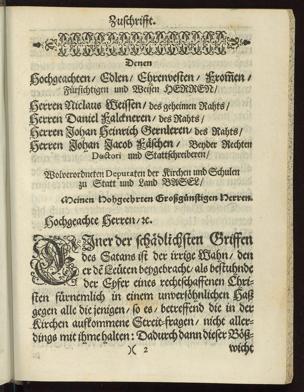 Zuschrifft.
Denen
Hochgeachten / Edlen / Ehrenvesten / From̃en /
Fürsichtigen und Weisen HERREN /
Herren Niclaus Weissen / des geheimen Rahts /
Herren Daniel Falckneren / des Rahts /
Herren Johan Heinrich Gernleren / des Rahts /
Herren Johan Jacob Fäschen / Beyder Rechten
Doctori und Stattschreiberen /
Wolverordneten Deputaten der Kirchen und Schulen
zu Statt und Land BASEL /
Meinen Hohgeehrten Großgünstigen Herren.
Hochgeachte Herren / ꝛc.
EIner der schädlichsten Griffen
des Satans ist der irrige Wahn / den
er dẽ Leüten beygebracht / als bestuhnde
der Eyfer eines rechtschaffenen Chri-
sten fürnemlich in einem unversöhnlichen Haß
gegen alle die jenigen / so es / betreffend die in der
Kirchen aufkommene Streit-fragen / nicht aller-
dings mit ihme halten: Dadurch dann dieser Böß-
)( 2
wicht